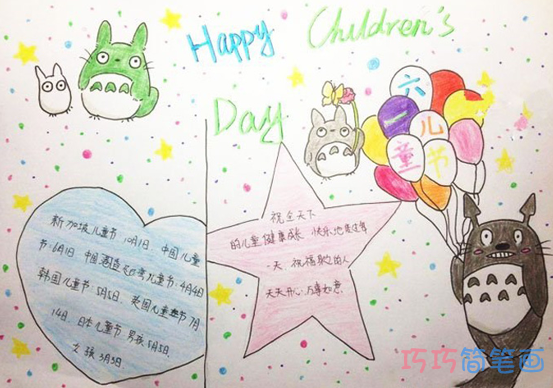 Happy Children's
Day
六一儿童节
新加坡儿童节10月1日 中国儿童
节6月1日 中国香港台湾儿童节4月4日
韩国儿童节5月5日 英国儿童节7月
14日 日本儿童节 男孩5月5日
女孩3月3日
祝全天下
的儿童健康成长 快乐地度过每
一天 祝福 的人
天天开心 万事如意
巧巧简笔画